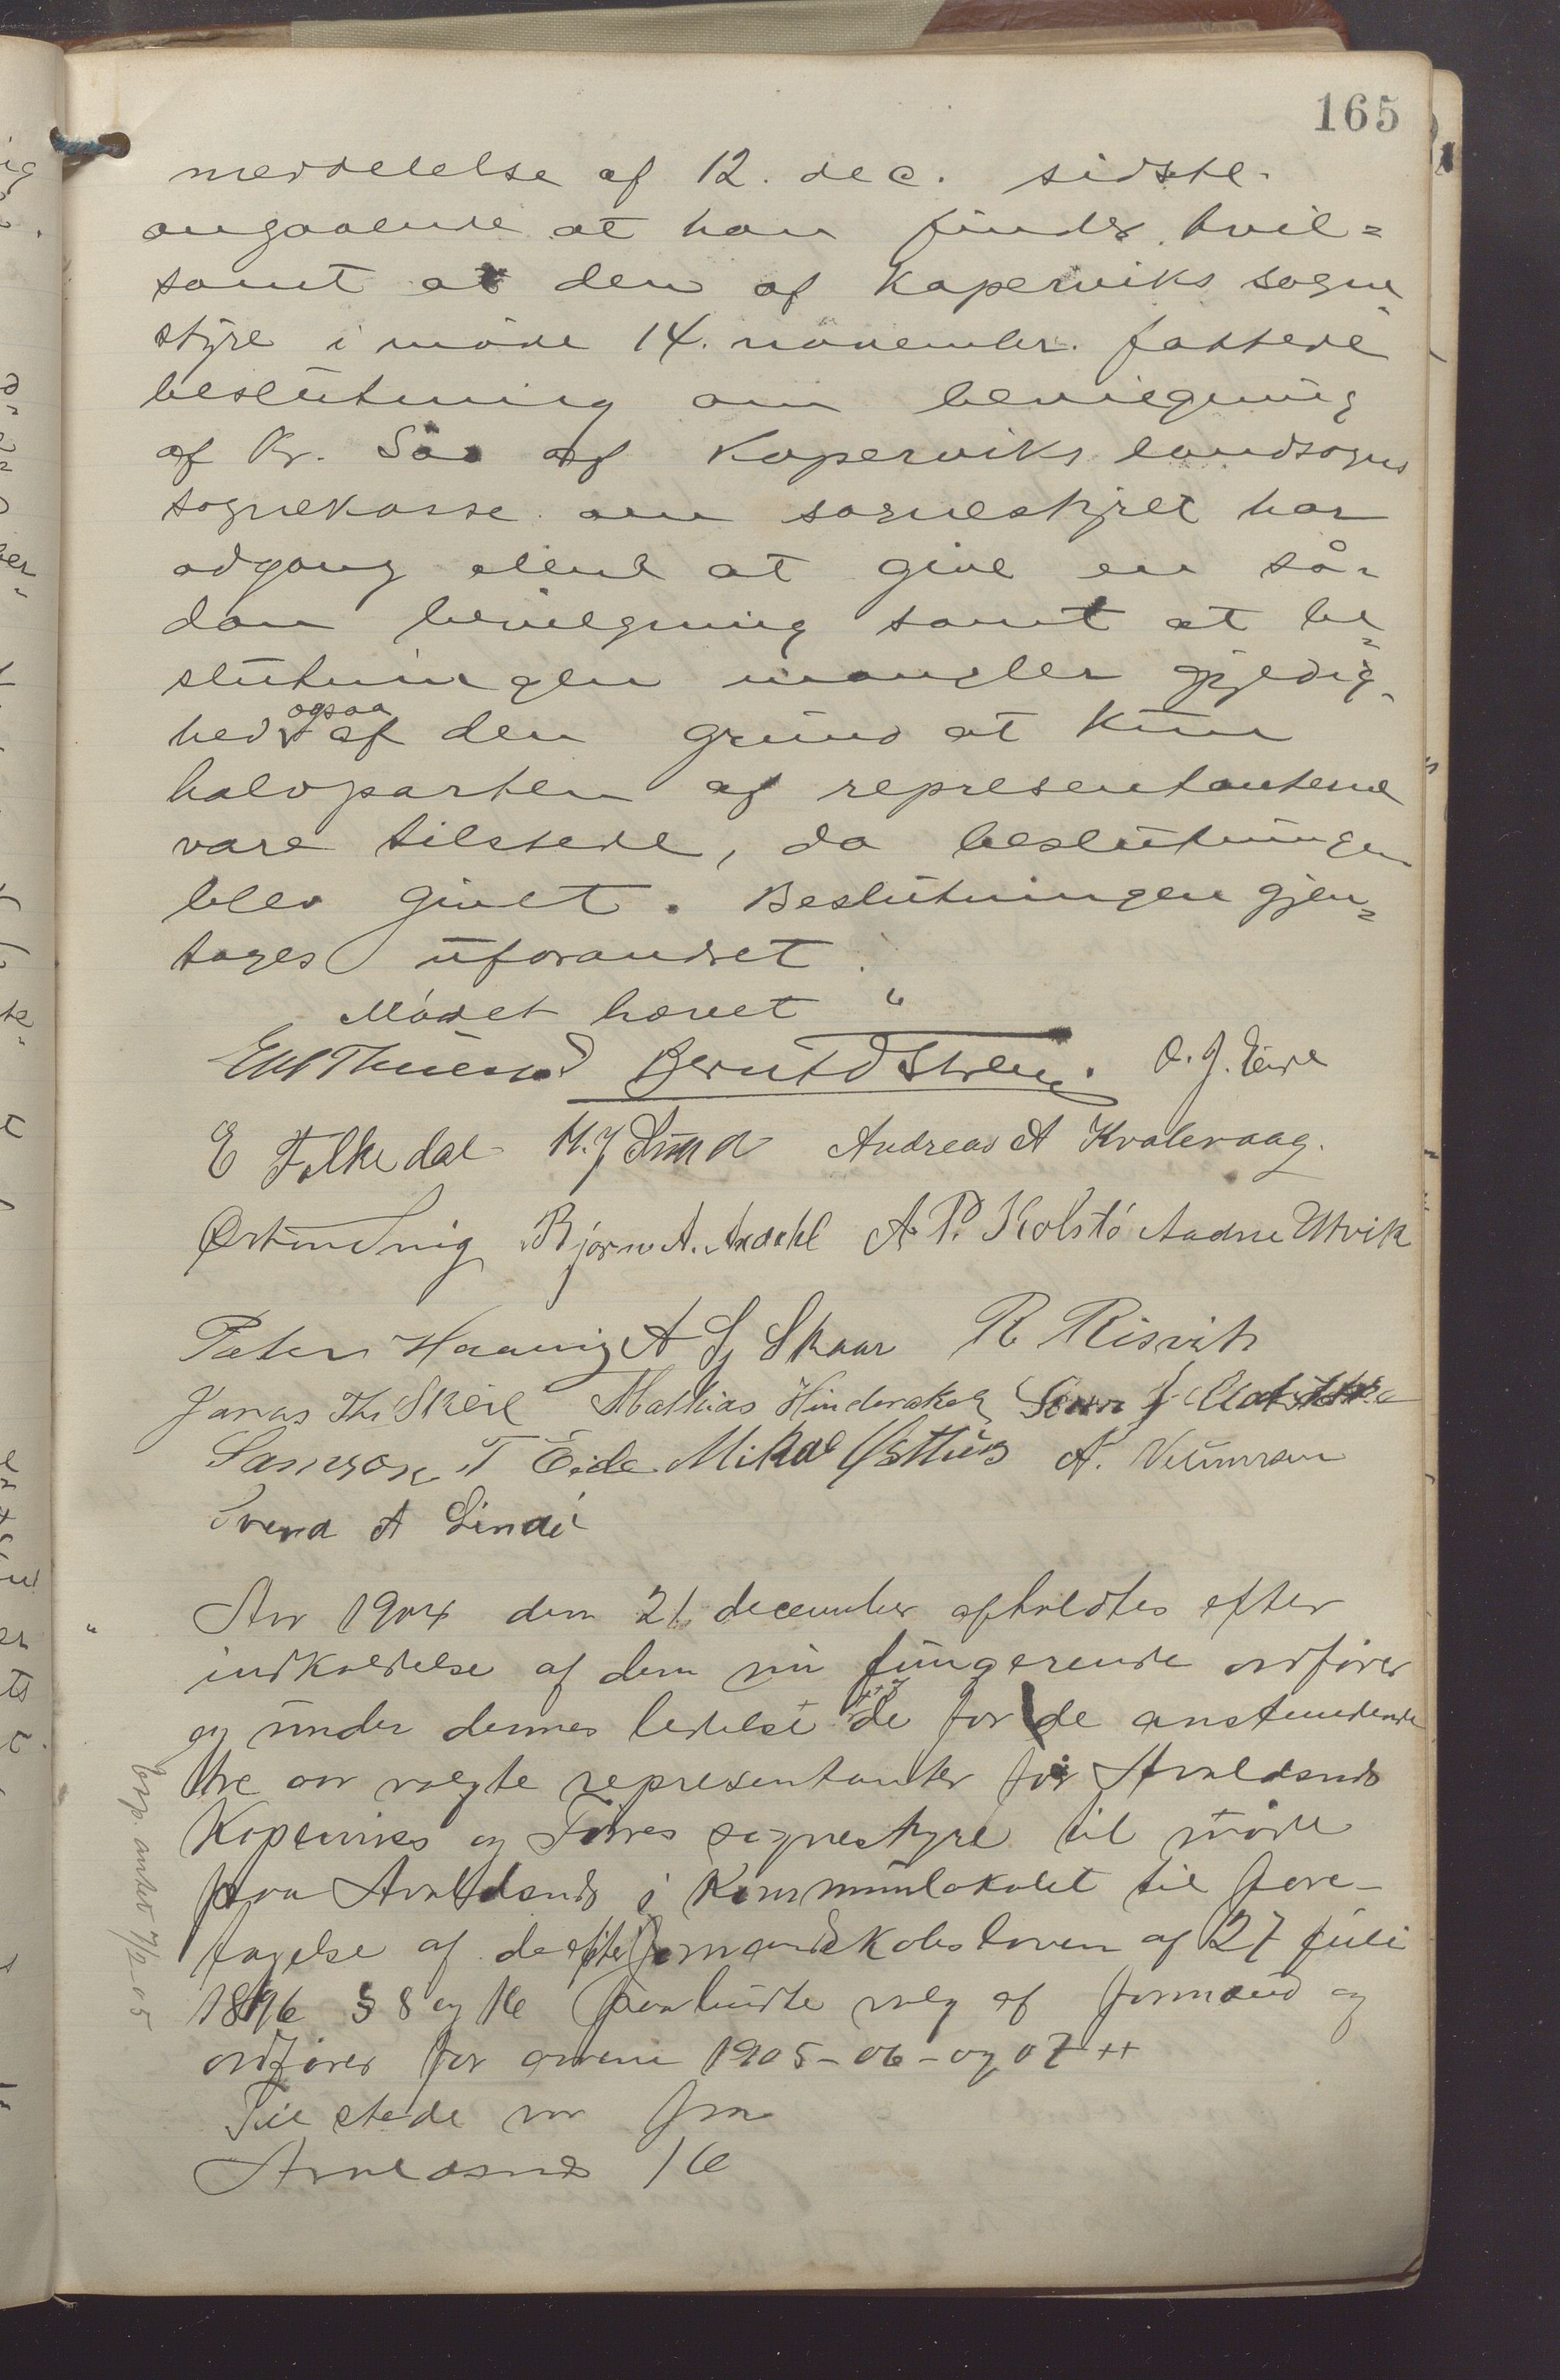 165
meddelelse af 12. dec. sidstl.
angaaende at han finder tvil=
samt at den af Kopervviks sogne
styre i møde 14. november. fattede
beslutning om bevilgning
af Kr. 500 af Koperviks landsogns
sognekasse om sognestyret har
adgang alene at give en så-
dan bevilgning samt at be=
slutningen mangler gyldig-
hed ogsaa af den grund at kun
halvparten af representanterne
vare tilstede, da beslutningen
blev givet. Beslutningen gjen=
tages uforandret.
Mødet hævet "
Bernt O. J. Eide
E Folkedal M. J Lund Andreas A Kvalevaag.
Bjørn A. Axdahl A. P. Kolstö Aadne Utvik
Peter Haavig A Sj Skaar R Risvik
Jonas Th. Skeie Mathias Hinderaker
Samson T Eide Mikal Østhus A.
Svend A Lindø
Aar 1904 den 21. december afholdtes efter
indkaldelse af den nu fungerende ordfører
og under dennes ledelse de for de anstundende
tre aar valgte representanter for Avaldsnes
Koperviks og Torves sognestyre til møde
paa Avaldsnes i Kommunlokalet til fore-
tagelse af de efter formandskabsloven af 27 juli
1896 § 8 og 16 paabudte valg af formænd og
ordfører for aarene 1905-06-og 07 ++
Til stede var fra
Avaldsnes 16
Exp. 7/2-05